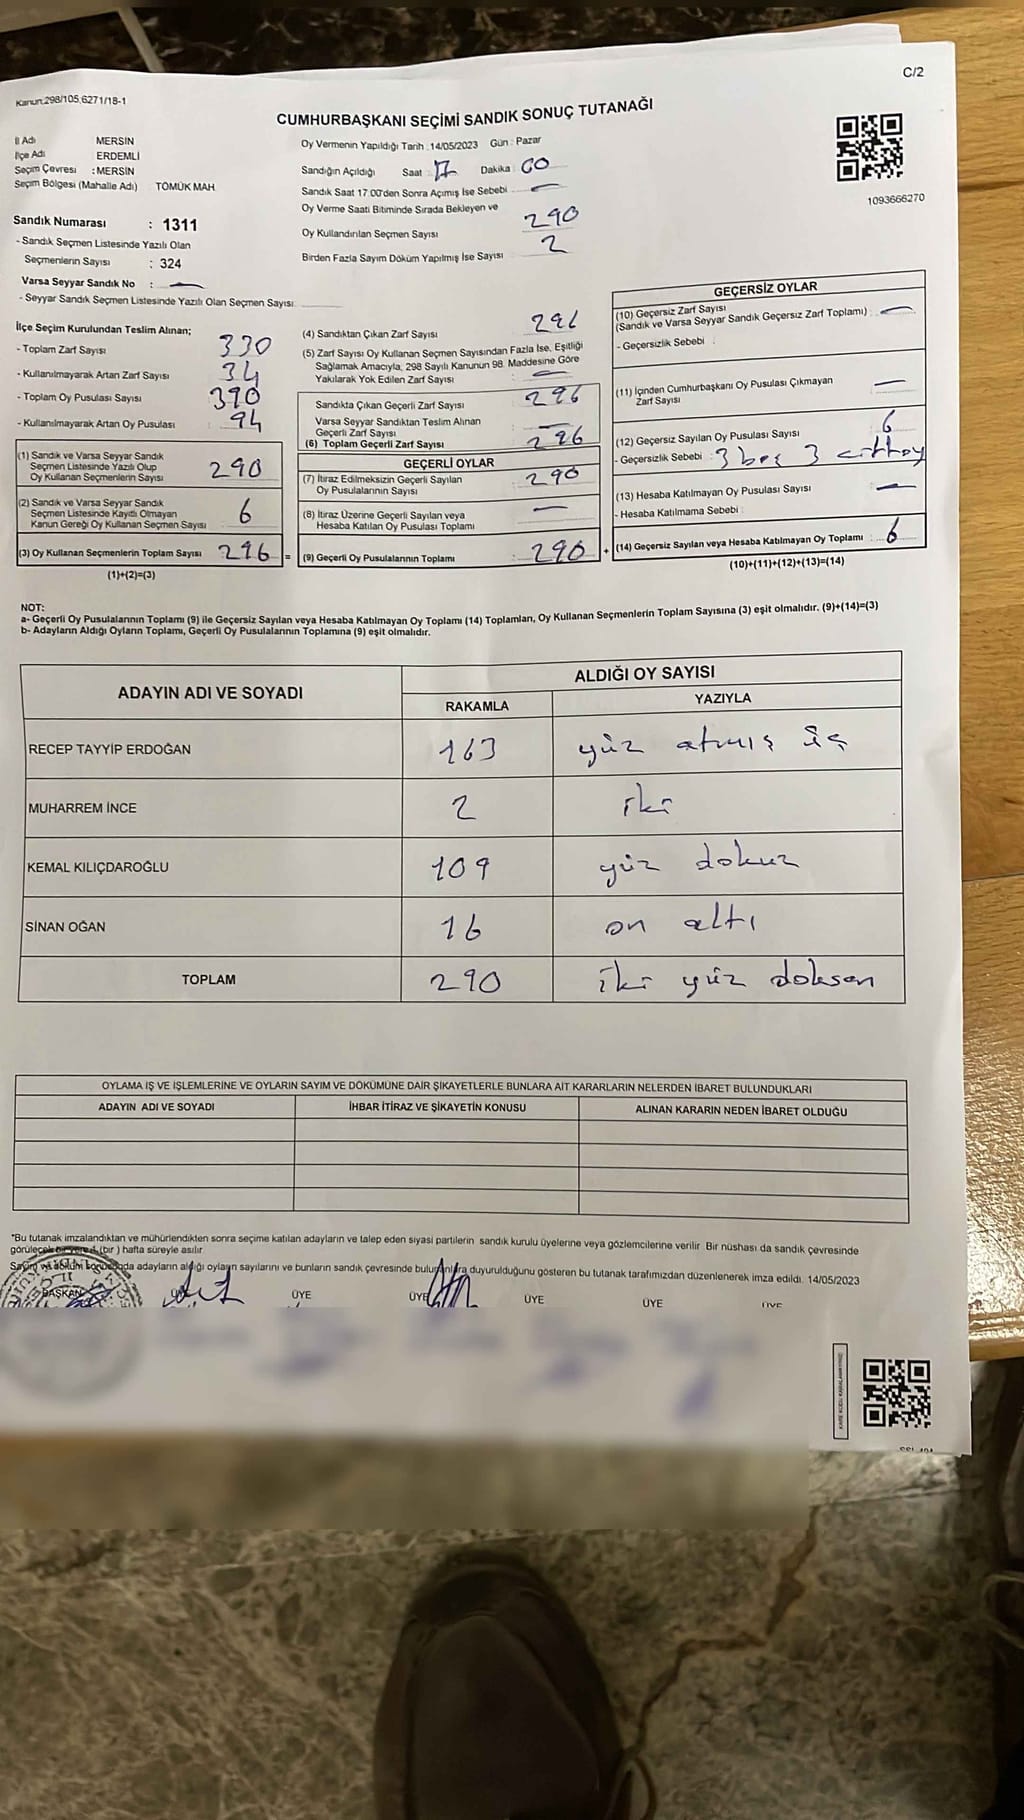 C/2
Kanun:298/105;6271/18-1
CUMHURBAŞKANI SEÇİMİ SANDIK SONUÇ TUTANAĞI
İl Adı MERSİN
İlçe Adı ERDEMLİ
Seçim Çevresi : MERSİN
Seçim Bölgesi (Mahalle Adı) TÖMÜK MAH.
Sandık Numarası : 1311
- Sandık Seçmen Listesinde Yazılı Olan
Seçmenlerin Sayısı : 324
Varsa Seyyar Sandık No : —
- Seyyar Sandık Seçmen Listesinde Yazılı Olan Seçmen Sayısı
Oy Vermenin Yapıldığı Tarih : 14/05/2023 Gün : Pazar
Sandığın Açıldığı Saat : 17 Dakika : 00
Sandık Saat 17.00'den Sonra Açımış İse Sebebi —
Oy Verme Saati Bitiminde Sırada Bekleyen ve
Oy Kullandırılan Seçmen Sayısı 290
Birden Fazla Sayım Döküm Yapılmış İse Sayısı 2
1093666270
İlçe Seçim Kurulundan Teslim Alınan;
- Toplam Zarf Sayısı 330
- Kullanılmayarak Artan Zarf Sayısı : 34
- Toplam Oy Pusulası Sayısı 390
- Kullanılmayarak Artan Oy Pusulası : 94
(1) Sandık ve Varsa Seyyar Sandık
Seçmen Listesinde Yazılı Olup
Oy Kullanan Seçmenlerin Sayısı 290
(2) Sandık ve Varsa Seyyar Sandık
Seçmen Listesinde Kayıtlı Olmayan
Kanun Gereği Oy Kullanan Seçmen Sayısı 6
(3) Oy Kullanan Seçmenlerin Toplam Sayısı 296 =
(1)+(2)=(3)
(4) Sandıktan Çıkan Zarf Sayısı 296
(5) Zarf Sayısı Oy Kullanan Seçmen Sayısından Fazla İse, Eşitliği
Sağlamak Amacıyla, 298 Sayılı Kanunun 98. Maddesine Göre
Yakılarak Yok Edilen Zarf Sayısı —
Sandıkta Çıkan Geçerli Zarf Sayısı : 296
Varsa Seyyar Sandıktan Teslim Alınan
Geçerli Zarf Sayısı : —
(6) Toplam Geçerli Zarf Sayısı : 296
GEÇERLİ OYLAR
(7) İtiraz Edilmeksizin Geçerli Sayılan
Oy Pusulalarının Sayısı : 290
(8) İtiraz Üzerine Geçerli Sayılan veya
Hesaba Katılan Oy Pusulası Toplamı —
(9) Geçerli Oy Pusulalarının Toplamı : 290 +
GEÇERSİZ OYLAR
(10) Geçersiz Zarf Sayısı
(Sandık ve Varsa Seyyar Sandık Geçersiz Zarf Toplamı) : —
- Geçersizlik Sebebi :
(11) İçinden Cumhurbaşkanı Oy Pusulası Çıkmayan
Zarf Sayısı —
(12) Geçersiz Sayılan Oy Pusulası Sayısı 6
- Geçersizlik Sebebi : 3 boş 3
(13) Hesaba Katılmayan Oy Pusulası Sayısı —
- Hesaba Katılmama Sebebi :
(14) Geçersiz Sayılan veya Hesaba Katılmayan Oy Toplamı : 6
(10)+(11)+(12)+(13)=(14)
NOT:
a- Geçerli Oy Pusulalarının Toplamı (9) ile Geçersiz Sayılan veya Hesaba Katılmayan Oy Toplamı (14) Toplamları, Oy Kullanan Seçmenlerin Toplam Sayısına (3) eşit olmalıdır. (9)+(14)=(3)
b- Adayların Aldığı Oyların Toplamı, Geçerli Oy Pusulalarının Toplamına (9) eşit olmalıdır.
ADAYIN ADI VE SOYADI ALDIĞI OY SAYISI
RAKAMLA YAZIYLA
RECEP TAYYİP ERDOĞAN 163 yüz atmış üç
MUHARREM İNCE 2 iki
KEMAL KILIÇDAROĞLU 109 yüz dokuz
SİNAN OĞAN 16 on altı
TOPLAM 290 iki yüz doksan
OYLAMA İŞ VE İŞLEMLERİNE VE OYLARIN SAYIM VE DÖKÜMÜNE DAİR ŞİKAYETLERLE BUNLARA AİT KARARLARIN NELERDEN İBARET BULUNDUKLARI
ADAYIN ADI VE SOYADI İHBAR İTİRAZ VE ŞİKAYETİN KONUSU ALINAN KARARIN NEDEN İBARET OLDUĞU
*Bu tutanak imzalandıktan ve mühürlendikten sonra seçime katılan adayların ve talep eden siyasi partilerin sandık kurulu üyelerine veya gözlemcilerine verilir. Bir nüshası da sandık çevresinde
görülecek bir yere 1 (bir) hafta süreyle asılır.
Sayım ve döküm sonucunda adayların aldığı oyların sayılarını ve bunların sandık çevresinde bulunanlara duyurulduğunu gösteren bu tutanak tarafımızdan düzenlenerek imza edildi. 14/05/2023
BAŞKAN ÜYE ÜYE ÜYE ÜYE ÜYE